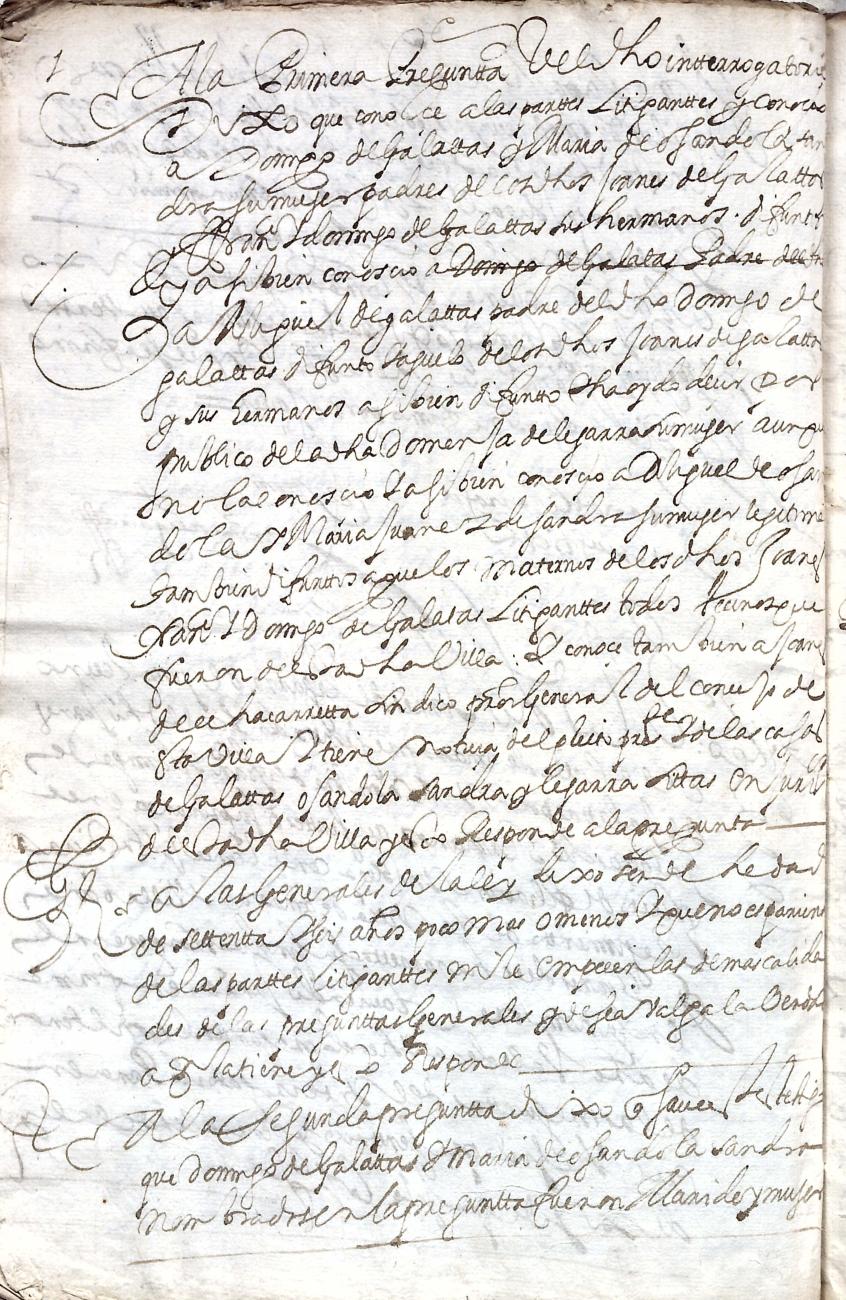 1 A la Primera Pregunta del dho intterrogatorio
Dixo que conosce a las parttes Litiganttes y conocio
a Domingo de Galattas y Maria de osandola san
dra su muger padres de los dhos Joanes de Galatta
y Fran.co y domingo de Galattas sus hermanos. difuntos
y asi bien conoscio a Domingo de Galatas Padre del dho
a Miguel de galattas padre del dho Domingo de
galattas difunto y aguelo de los dhos Joanes de galatta
y sus hermanos asi bien difuntto y ha oydo decir por
publico de la dha Domensa de legarra su muger aunque
no la conoscio y asi bien conoscio a Miguel de osan
dola y Maria Juanez de sandra su muger legitima
tambien difunttos aguelos maternos de los dhos Joanes
Fran.co y Domingo de Galatas Litiganttes todos vecinos que
fueron de esta dha Villa: y conoce tambien a Joanes
de echacarretta sindico pror General del concejo de
esta villa y tiene noticia del pleito press.te y de las casas
de Galattas osandola sandra y legarra sittas en juris
on
de esta dha Villa y esto Responde a la pregunta
Gs. a las Generales de la ley dixo ser de hedad
de settentta y seis años poco mas o menos y que no es pariente
de las parttes litiganttes ni le empecen las demas calida
des de las pregunttas Generales y desea valga la Verdad
a q la tiene y esto Responde
2 A la Segunda preguntta dixo q save este testigo
que domingo de Galattas y Maria de osandola sandra
nombrados en la preguntta fueron Marido y muger